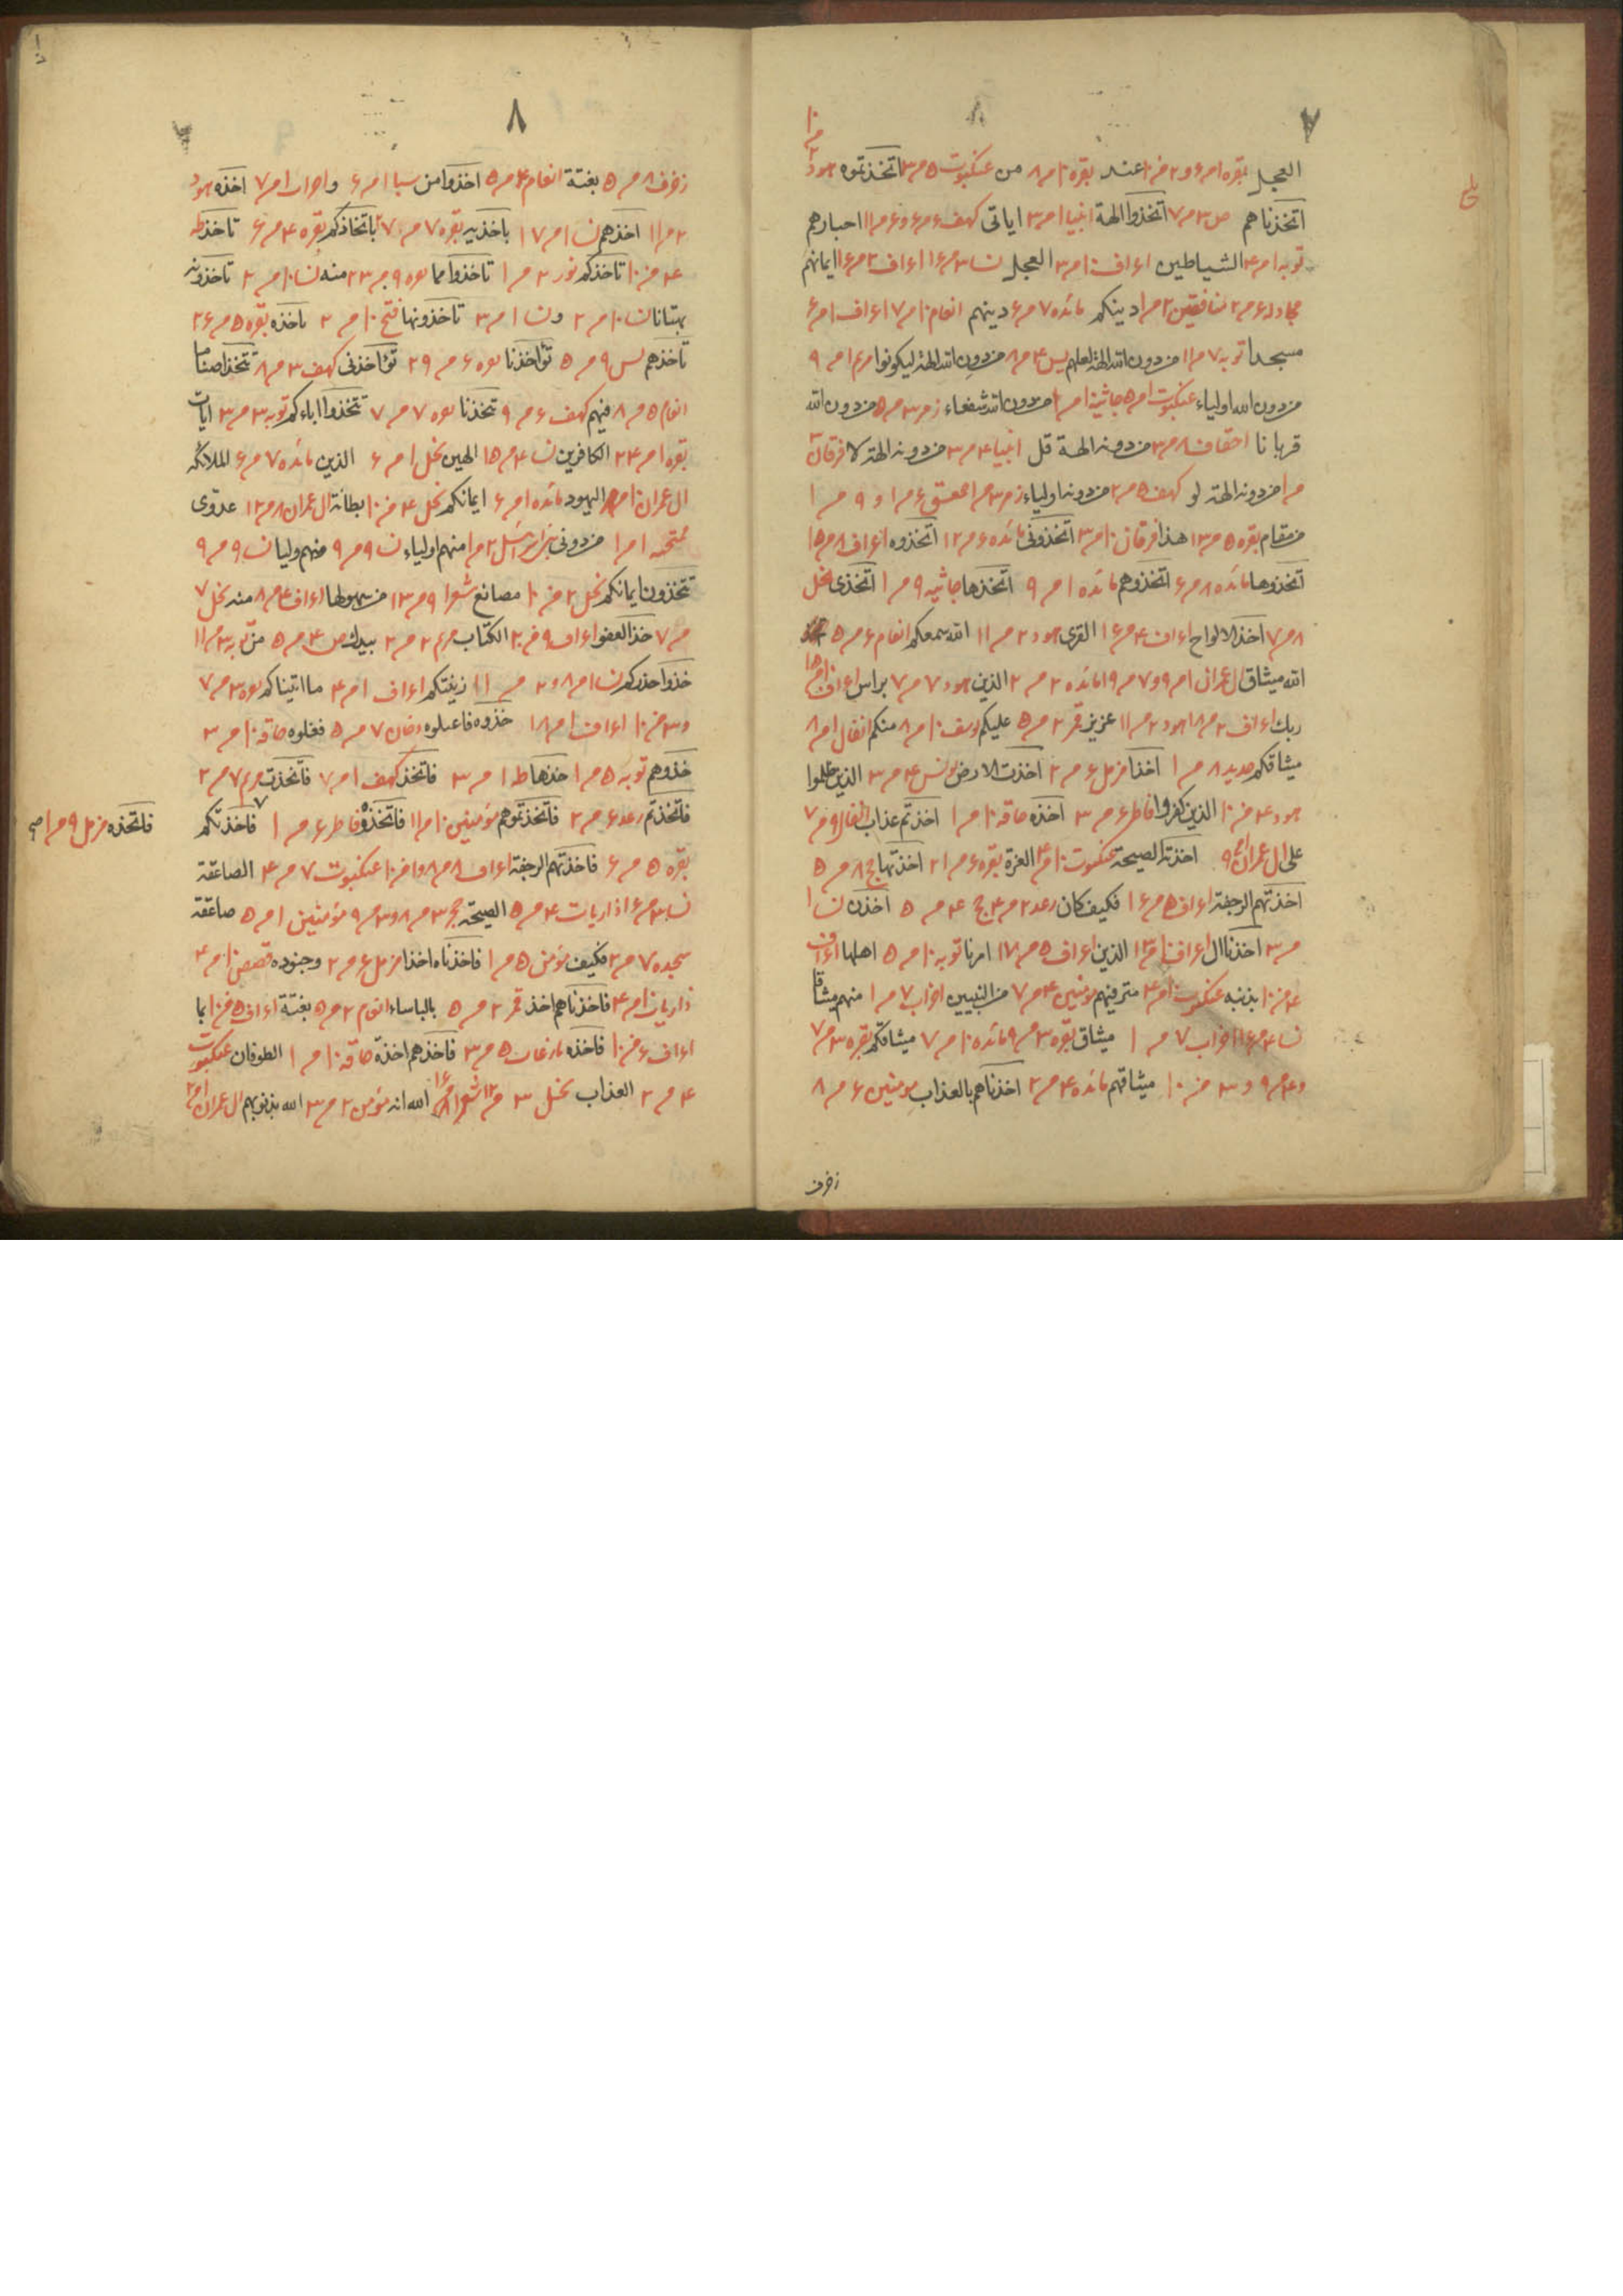 ٧
العجل بقره ١ م ۶ و ٢ م ١٠ عند بقره ١٠ م ٨ من عنكبوت ۵ م ٣ اتخذتموه هود
اتخذناهم ص ٣ م ٧ اتخذوا الهة انبيا ١ م ٣ اياتى كهف ۶ م ۶ و ۶ م ١١ احبارهم
توبه ١ م ۴ الشياطين اعراف ١٠ م ٣ العجل نسا ٣ م ١۶ اعراف ٢ م ١۶ ايمانهم
مجادله ۶ م ٢ منافقين ٢ م ١ دينكم مائده ٧ م ۶ دينهم انعام ١٠ م ٧ اعراف ١ م ۶
مسجدا توبه ٧ م ١١ من دون الله الهة لعلهم يس ۴ م ٨ من دون الله الهة ليكونوا مريم ١ م ٩
من دون الله اولياء عنكبوت ١ م ۵ جاثية ١ م ١٠ من دون الله شفعاء زمر ٣ م ۵ من دون الله
قربانا احقاف ٨ م ٣ من دونه الهة قل انبيا ۴ م ٣ من دونه الهة لا فرقان ٢
م ١ من دونه الهة لو كهف ۵ م ٢ من دونه اولياء زمر ٣ م ١ حمعسق ۶ م ١ و ٩ م ١
من مقام بقره ۵ م ١٣ هذا فرقان ١٠ م ٣ اتخذونى مائده ۶ م ١٢ اتخذوه اعراف ٨ م ١۵
اتخذوها مائده ٨ م ۶ اتخذوهم مائده ١ م ٩ اتخذها جاثيه ٩ م ١ اتخذى نحل
٨ م ٧ اخذ الالواح اعراف ۴ م ١۶ القرى هود ٢ م ١١ الله سمعكم انعام ۶ م ۵
الله ميثاق ال عمران ١ م ٩ و ٧ م ١٩ مائده ٢ م ٢ الذين هود ٧ م ٧ براس اعراف
ربك اعراف ٢ م ١٨ هود ٢ م ١١ عزيز قمر ٢ م ۵ عليكم يوسف ١٠ م ٨ منكم انفال ١ م ٨
ميثاقكم حديد ٨ م ١ اخذا مزمل ۶ م ٢ اخذت الارض يونس ۴ م ٣ الذين ظلموا
هود ۴ م ١٠ الذين كفروا فاطر ۶ م ٣ اخذه حاقه ١٠ م ١ اخذتم عذاب انفال ٩ م ٧
على ال عمران اخذته الصيحة عنكبوت ١٠ م ۴ العزة بقره ۶ م ٢١ اخذتها حج ٨ م ۵
اخذتهم الرجفة اعراف ۵ م ١۶ فكيف كان رعد ٢ م ۴ حج ۴ م ۵ اخذن نسا
م ٣ اخذنا ال اعراف ١٠ م ١٣ الذين اعراف ۵ م ١٧ امرنا توبه ١٠ م ۵ اهلها اعراف
۴ م ١٠ بذنبه عنكبوت ١٠ م ۴ مترفيهم مؤمنين ۴ م ٧ من النبيين احزاب ٧ م ١ منهم ميثاقا
نسا ۴ م ١۶ احزاب ٧ م ١ ميثاق بقره ٣ م ٩ مائده ١٠ م ٧ ميثاقكم بقره ٣ م ٧
و ۴ م ٩ و ٣ م ١٠ ميثاقهم مائده ۴ م ٢ اخذناهم بالعذاب مؤمنين ۶ م ٨
زخرف
٨
زخرف ٨ م ۵ بغتة انعام ۴ م ۵ اخذوا من سبا ١ م ۶ و احزاب ١ م ٧ اخذه هود
٢ م ١١ اخذهم نسا ١ م ١٧ باخذيه بقره ٧ م ٢٧ باتخاذكم بقره ۴ م ۶ تاخذ طه
۴ م ١٠ تاخذكم نور ٢ م ١ تاخذوا مما بقره ٩ م ٢٣ منه نسا ١٠ م ٢ تاخذونه
بهتانا نسا ١٠ م ٢ و نسا ١ م ٣ تاخذونها فتح ١٠ م ٢ تاخذه بقره ۵ م ٢۶
تاخذهم يس ٩ م ۵ تؤاخذنا بقره ۶ م ٢٩ تؤاخذنى كهف ٣ م ٨ تتخذ اصناما
انعام ۵ م ٨ فيهم كهف ۶ م ٩ تتخذنا بقره ٧ م ٧ تتخذوا اباءكم توبه ٣ م ٣ ايات
بقره ١ م ٢۴ الكافرين نسا ۴ م ١۵ الهين نحل ١ م ۶ الذين مائده ٧ م ۶ الملائكه
ال عمران اليهود مائده ١ م ۶ ايمانكم نحل ۴ م ١٠ بطانة ال عمران ٨ م ١٢ عدوى
ممتحنه ١ م ١ من دونى بنى اسرائيل ٢ م ١ منهم اولياء نسا ٩ م ٩ منهم وليا نسا ٩ م ٩
تتخذون ايمانكم نحل ٢ م ١٠ مصانع شعرا ٩ م ١٣ من سهولها اعراف ۴ م ٨ منه نحل ٧
م ٧ خذ العفو اعراف ٩ م ٢٠ الكتاب مريم ٢ م ٢ بيدك ص ۴ م ۵ من توبه ٣ م ١١
خذوا حذركم نسا ١ م ٨ و ٢ م ١١ زينتكم اعراف ١ م ۴ ما اتيناكم بقره ٣ م ٧
و ٣ م ١٠ اعراف ١ م ١٨ خذوه فاعتلوه دخان ٧ م ۵ فغلوه حاقه ١٠ م ٣
خذوهم توبه ۵ م ١ خذها طه ١ م ٣ فاتخذ كهف ١ م ٧ فاتخذت مريم ٧ م ٢
فاتخذتم رعد ۶ م ٢ فاتخذتموهم مؤمنين ١٠ م ١١ فاتخذوه فاطر ۶ م ١ فاخذتكم
فاتخذه مزمل ٩ م ١ صح
بقره ۵ م ۶ فاخذتهم الرجفة اعراف ٨ م ٨ و ١ م ١٠ عنكبوت ٧ م ۴ الصاعقة
نسا ٣ م ١۶ ذاريات ۴ م ۵ الصيحة حجر ٣ م ٨ و ٣ م ٩ مؤمنين ١ م ۵ صاعقة
سجده ٧ م ٢ فكيف مؤمن ۵ م ١ فاخذناه اخذا مزمل ۶ م ٢ وجنوده قصص ١٠ م ۴
ذاريات ١٠ م ۴ فاخذناهم اخذ قمر ٢ م ۵ بالباساء انعام ٢ م ۵ بغتة اعراف ۵ م ١٠ بما
اعراف ۶ م ١٠ فاخذه نازعات ۵ م ٣ فاخذهم اخذة حاقه ١٠ م ١ الطوفان عنكبوت
۴ م ٢ العذاب نحل ٣ م ١٢ شعرا الله انه مؤمن ٢ م ٣ الله بذنوبهم ال عمران